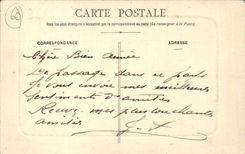 CARTE POSTALE
Tous les pays étrangers n'acceptent pas la correspondance au verso (Se renseigner à la Poste)
CORRESPONDANCE ADRESSE
Chère Bien Aimée
De passage dans ce pays
Je vous envoie mes meilleurs
sentiments d'amitiés
Recevez mes plus touchantes
amitiés